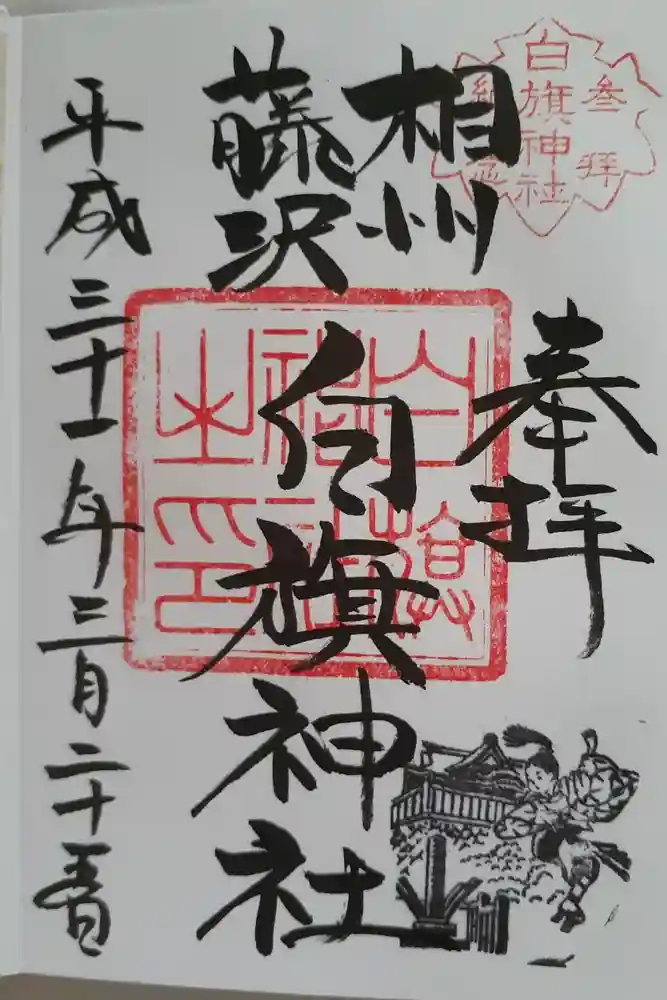 白旗神社
参拝
紀念
奉拝
相州
藤沢
白旗神社
白旗
神社
之印
平成三十一年三月二十五日